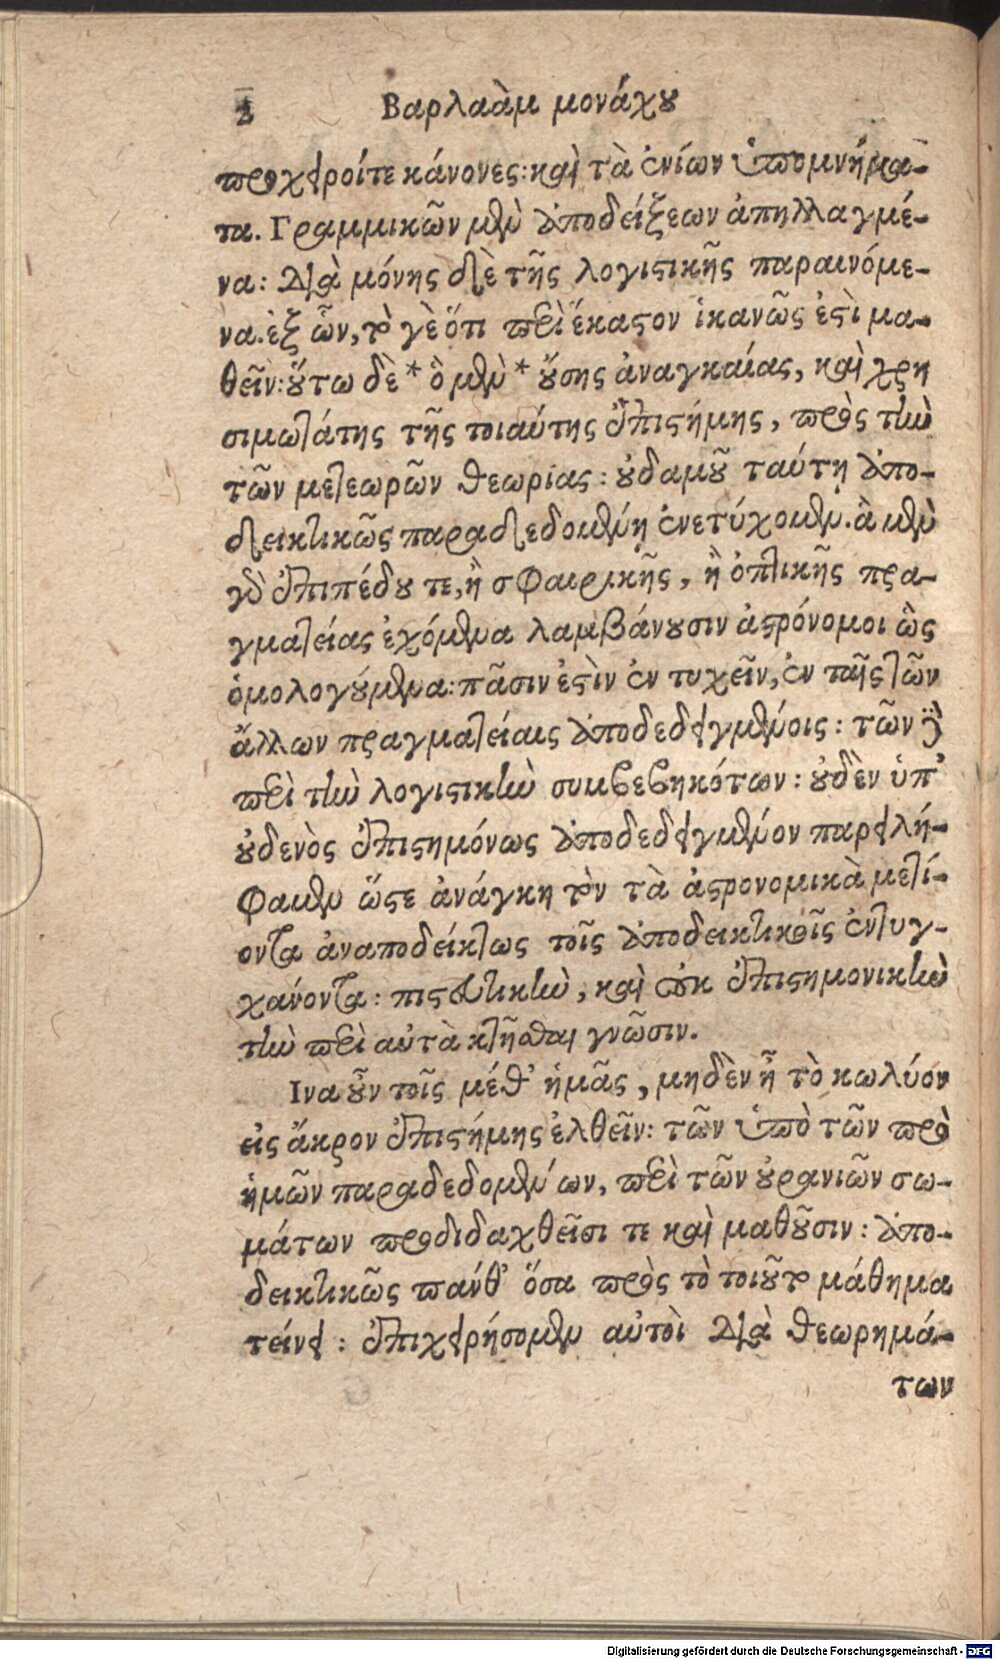 2 Βαρλαὰμ μονάχου
προχειροίτε κάνονες: καὶ τὰ ἐνίων ὑπομνήμα-
τα. Γραμμικῶν μὲν ἀποδείξεων ἀπηλλαγμέ-
να: διὰ μόνης δὲ τῆς λογιστικῆς παραινόμε-
να. ἐξ ὧν, τὸ γὲ ὅτι περὶ ἕκαστον ἱκανῶς ἐστὶ μα-
θεῖν: οὕτω δὲ * ὃ μὲν * οὔσης ἀναγκαίας, καὶ χρη
σιμωτάτης τῆς τοιαύτης ἐπιστήμης, πρὸς τὴν
τῶν μετεωρῶν θεωρίας: οὐδαμοῦ ταύτῃ ἀπο-
δεικτικῶς παραδεδομένῃ ἐνετύχομεν. ἃ μὲν
γὰρ ἐπιπέδου τε, ἢ σφαιρικῆς, ἢ ὀπτικῆς πρα-
γματείας ἐχόμενα λαμβάνουσιν ἀστρόνομοι ὣς
ὁμολογούμενα: πᾶσιν ἐστὶν ἐν τυχεῖν, ἐν ταῖς τῶν
ἄλλων πραγματείαις ἀποδεδειγμένοις: τῶν δὲ
περὶ τὴν λογιστικὴν συμβεβηκότων: οὐδὲν ὑπ'
οὐδενὸς ἐπιστημόνως ἀποδεδειγμένον παρειλή-
φαμεν ὥστε ἀνάγκη τὸν τὰ ἀστρονομικὰ μετί-
οντα ἀναποδείκτως τοῖς ἀποδεικτικοῖς ἐντυγ-
χάνοντα: πιστευτικὴν, καὶ οὐκ ἐπιστημονικὴν
τὴν περὶ αὐτὰ κτῆσθαι γνῶσιν.
Ινα οὖν τοῖς μέθ' ἡμᾶς, μηδὲν ἦ τὸ κωλύον
εἰς ἄκρον ἐπιστήμης ἐλθεῖν: τῶν ὑπὸ τῶν πρὸ
ἡμῶν παραδεδομένων, περὶ τῶν οὐρανιῶν σω-
μάτων προδιδαχθεῖσι τε καὶ μαθοῦσιν: ἀπο-
δεικτικῶς πανθ' ὅσα πρὸς τὸ τοιοῦτο μάθημα
τείνει: ἐπιχειρήσομεν αὐτοὶ διὰ θεωρημά-
των
Digitalisierung gefördert durch die Deutsche Forschungsgemeinschaft - DFG